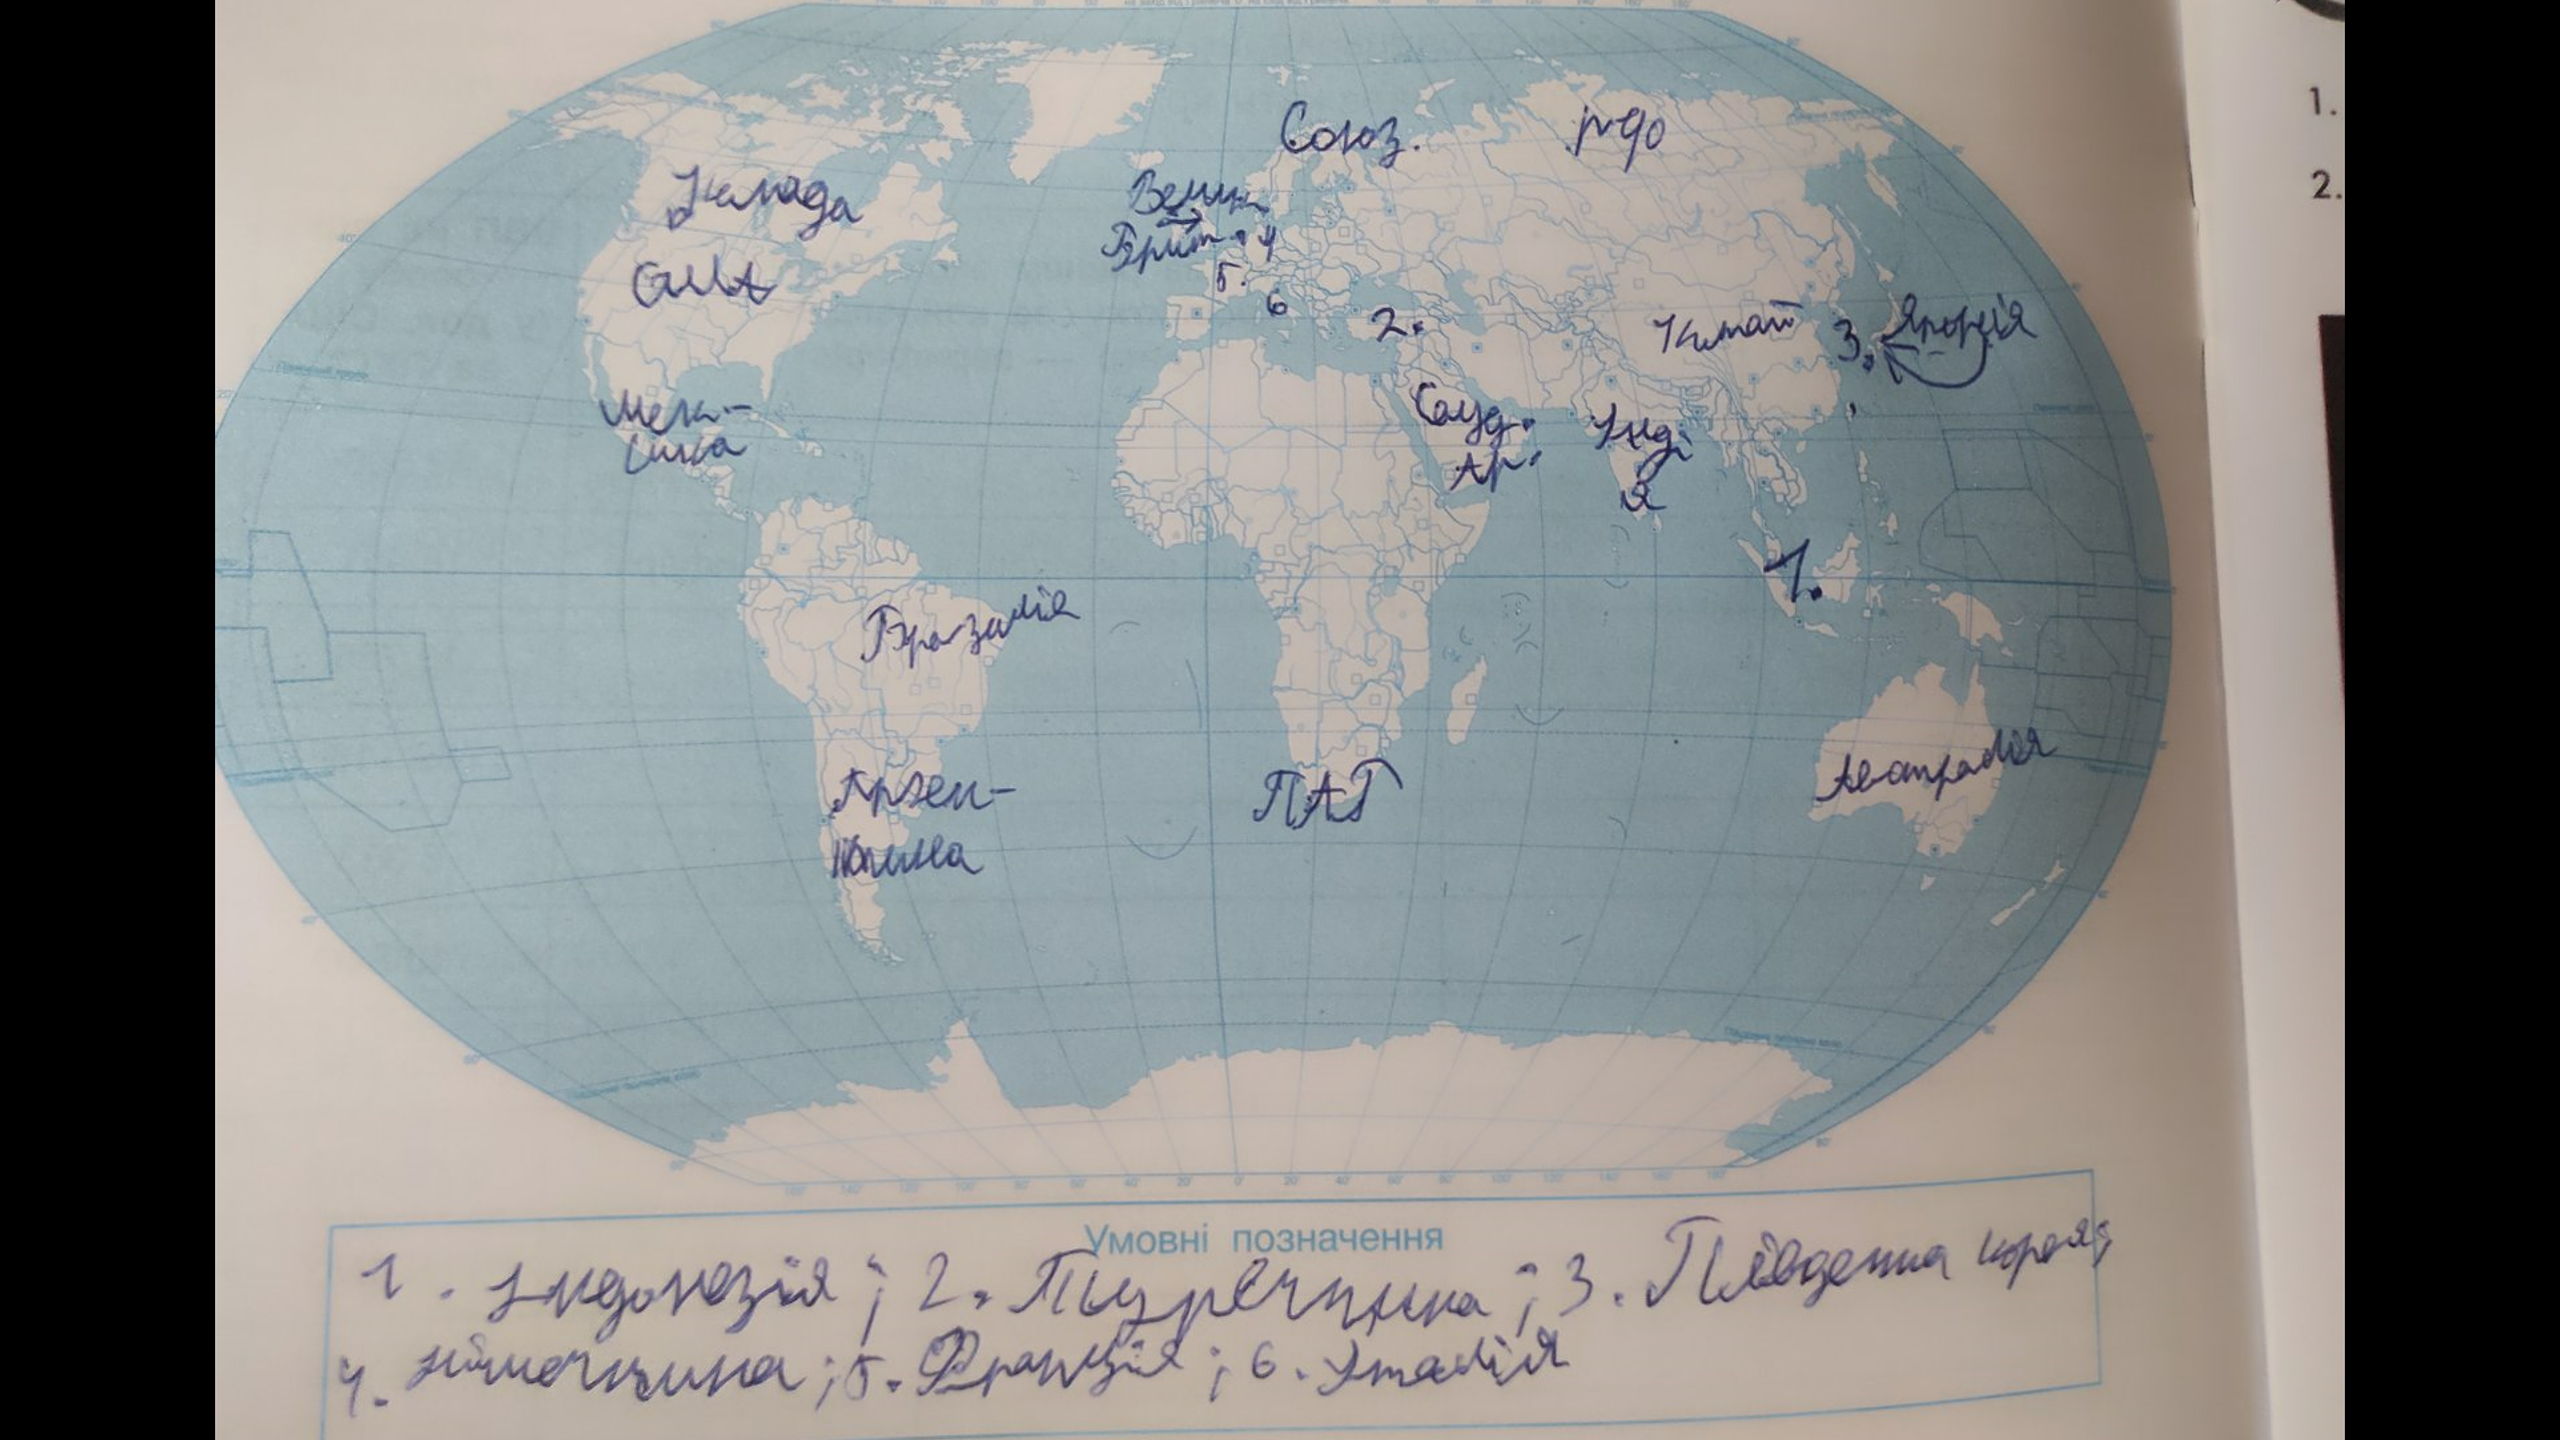 Союз.
рф
Канада
Велик.
Брит.
4
США
5.
6
2.
Китай
3.
Японія
Мек-
сика
Сауд.
Ар.
Інді
я
1.
Бразилія
Австралія
Арген-
тина
ПАР
Умовні позначення
1. Індонезія; 2. Туреччина; 3. Південна корея;
4. німеччина; 5. Франція; 6. Італія
1.
2.